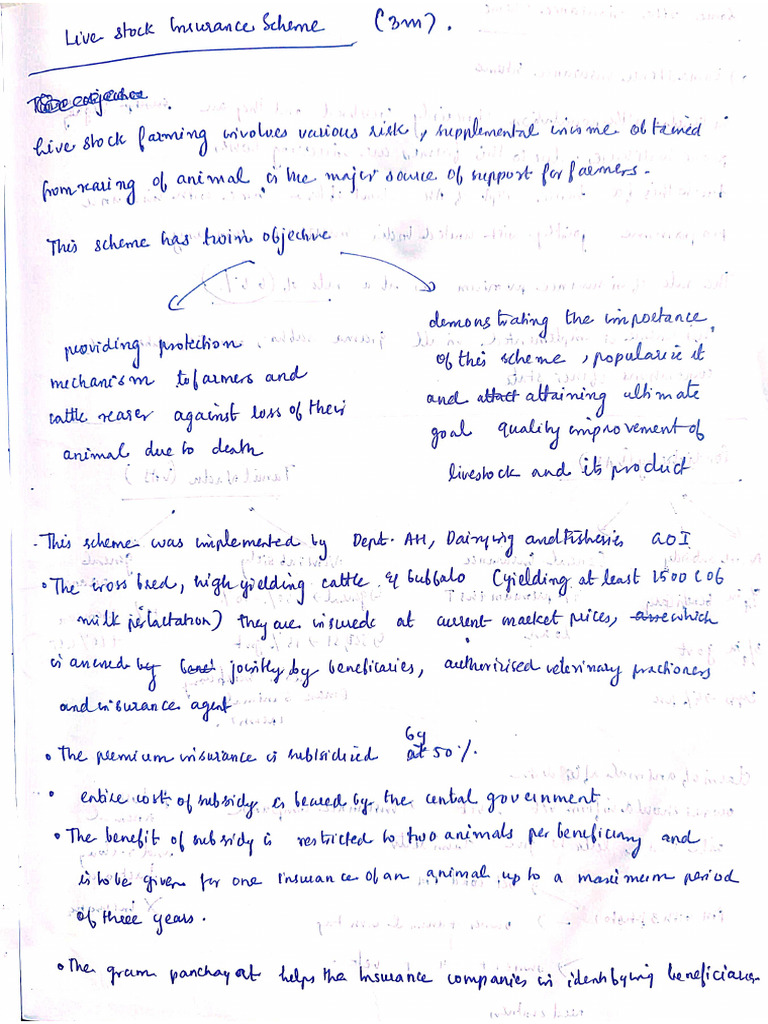 Live stock Insurance Scheme (3m).
Live stock farming involves various risk, supplemental income obtained
from rearing of animal is the major source of support for farmers.
This scheme has twin objective
providing protection
mechanism to farmers and
cattle rearer against loss of their
animal due to death
demonstrating the importance
of this scheme, popularize it
and attaining ultimate
goal quality improvement of
livestock and its product
- This scheme was implemented by Dept. AH, Dairying and Fisheries GOI
• The cross bred, high yielding cattle & buffalo (yielding at least 1500
milk per lactation) they are insured at current market prices, which
is by jointly by beneficiaries, authorized veterinary practioners
and insurance agent
• The premium insurance is subsidized by 50%.
• entire cost of subsidy is beared by the central government
• The benefit of subsidy is restricted to two animals per beneficiary and
is to be given for one insurance of an animal up to a maximum period
of three years.
• The gram panchayat helps the Insurance companies in identifying beneficiaries.